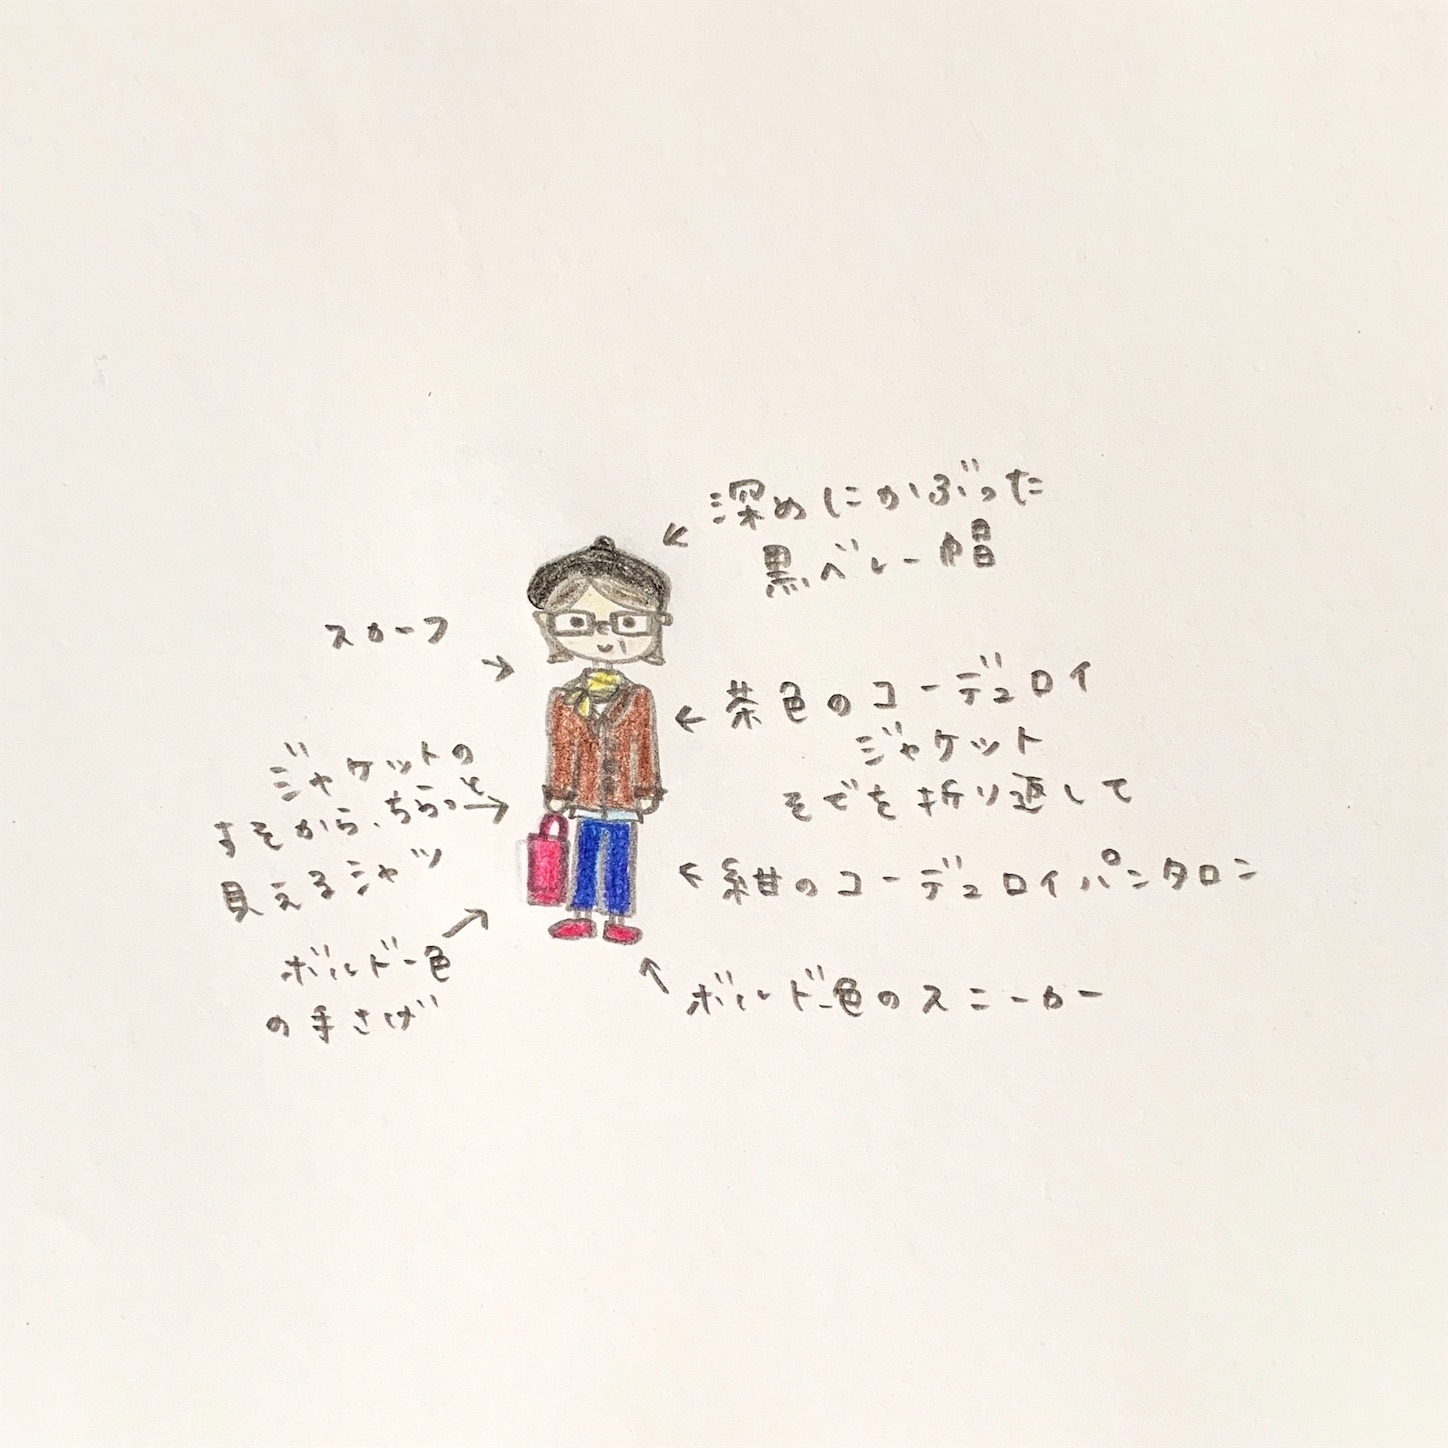 深めにかぶった
黒ベレー帽
スカーフ
茶色のコーデュロイ
ジャケット
そでを折り返して
ジャケットの
すそから、ちらっと
見えるシャツ
紺のコーデュロイパンタロン
ボルドー色
の手さげ
ボルドー色のスニーカー